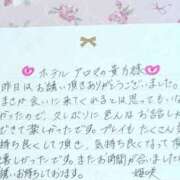 ♡ホテル アロマの貴方様♡
昨日はお誘い頂きありがとうございました。
まさか会いに来てくれるとは思ってもいな
かったので、久しぶりに会えてお話
できて楽しかったです。プレイもたくさん
気持ち良くして頂き、気持ち良くなってもらえて
嬉しかったです。またお時間が合いました
お誘いお待ちしております。
姫咲